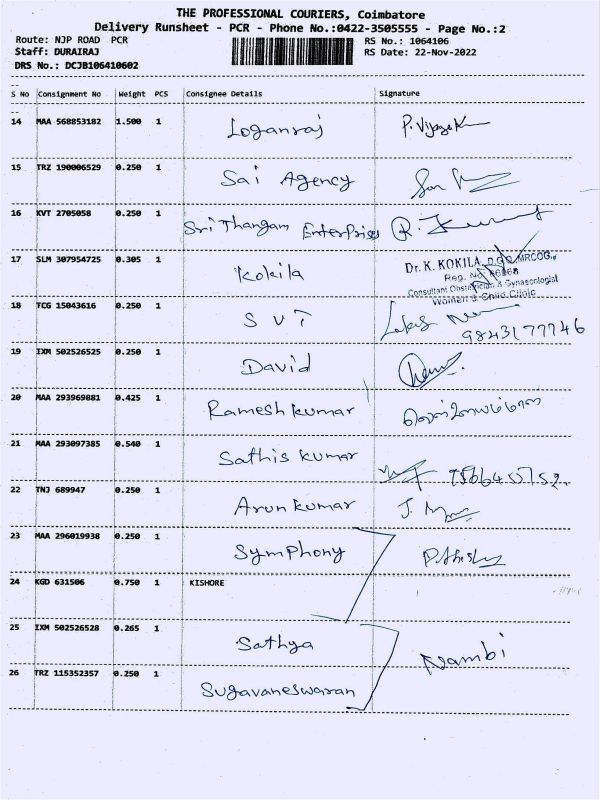 THE PROFESSIONAL COURIERS, Coimbatore
Delivery Runsheet - PCR - Phone No.:0422-3505555 - Page No.:2
Route: NJP ROAD PCR RS No.: 1064106
Staff: DURAIRAJ RS Date: 22-Nov-2022
DRS No.: DCJB106410602
S No Consignment No Weight PCS Consignee Details Signature
14 MAA 568853182 1.500 1 Loganraj
15 TRZ 190006529 0.250 1 Sai Agency
16 KVT 2705058 0.250 1 Sri Thangam Enterprises
17 SLM 307954725 0.305 1 Kokila
Dr. K. KOKILA, D.G.O, MRCOG.,
Reg. No
Consultant Obstetrician & Gynaecologist
Women & Child Clinic
18 TCG 15043616 0.250 1 SVT
9843177746
19 IXM 502526525 0.250 1 David
20 MAA 293969881 0.425 1 Ramesh kumar
21 MAA 293097385 0.540 1 Sathis kumar
22 TNJ 689947 0.250 1 Arun kumar
23 MAA 296019938 0.250 1 Symphony
24 KGD 631506 0.750 1 KISHORE
25 IXM 502526528 0.265 1 Sathya Nambi
26 TRZ 115352357 0.250 1 Sugavaneswaran